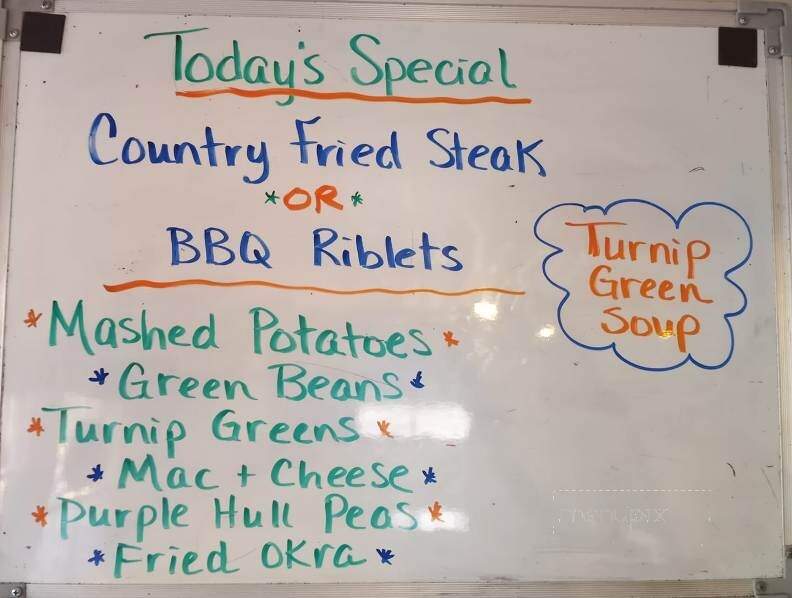 Today's Special
Country Fried Steak
*OR*
BBQ Riblets
Turnip
Green
Soup
*Mashed Potatoes*
*Green Beans*
*Turnip Greens*
*Mac + Cheese*
*Purple Hull Peas*
*Fried Okra*